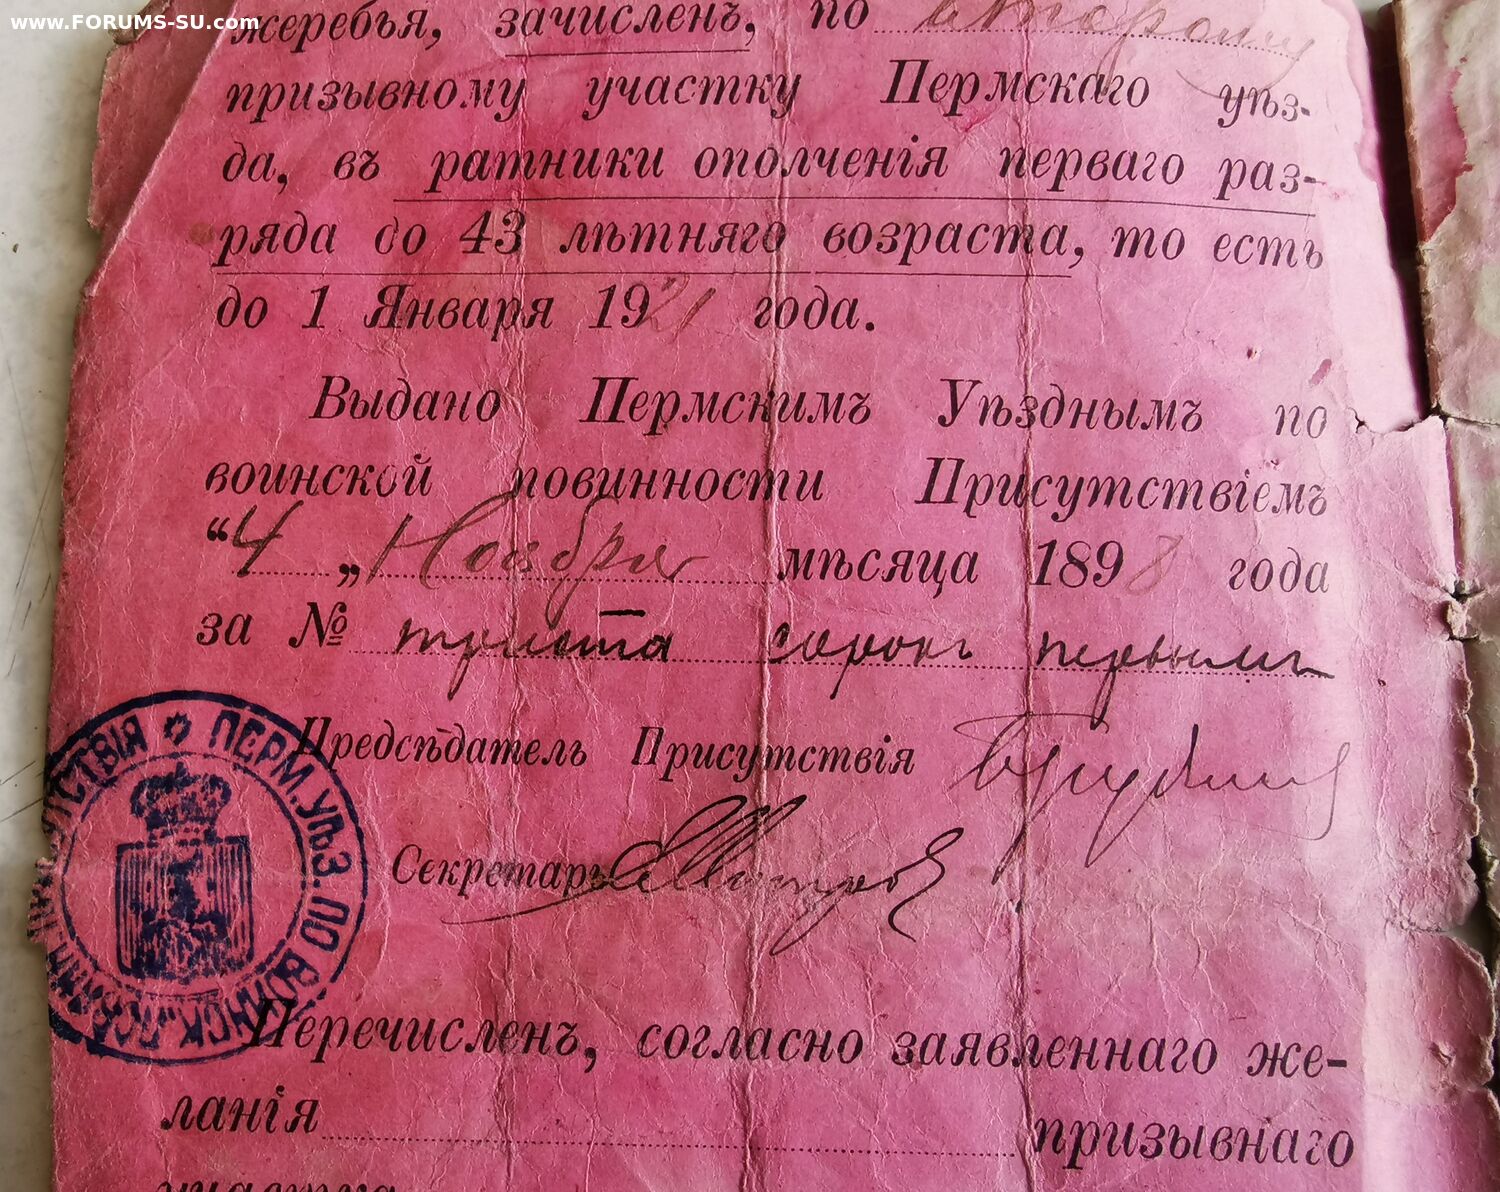 www.FORUMS-SU.com
жеребья, зачисленъ, по второму
призывному участку Пермскаго уѣз-
да, въ ратники ополченія перваго раз-
ряда до 43 лѣтняго возраста, то есть
до 1 Января 1921 года.
Выдано Пермскимъ Уѣзднымъ по
воинской повинности Присутствіемъ
“4„ Ноября мѣсяца 1898 года
за № триста сорокъ первымъ
Предсѣдатель Присутствія
Секретарь
ПЕРМ. УѢЗ. ПО ВОИНСК.
Перечисленъ, согласно заявленнаго же-
ланія призывнаго
участка